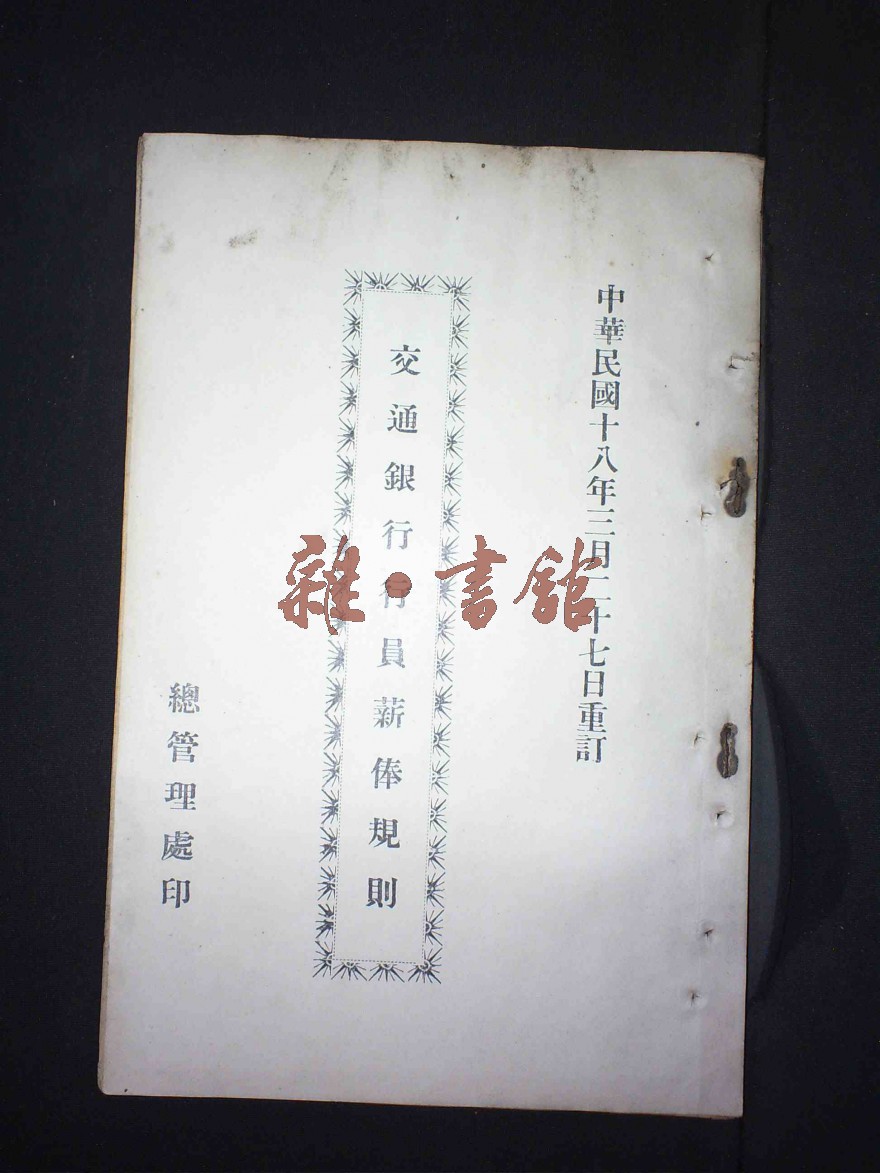 中華民國十八年三月二十七日重訂
交通銀行行員薪俸規則
總管理處印
雜·書館